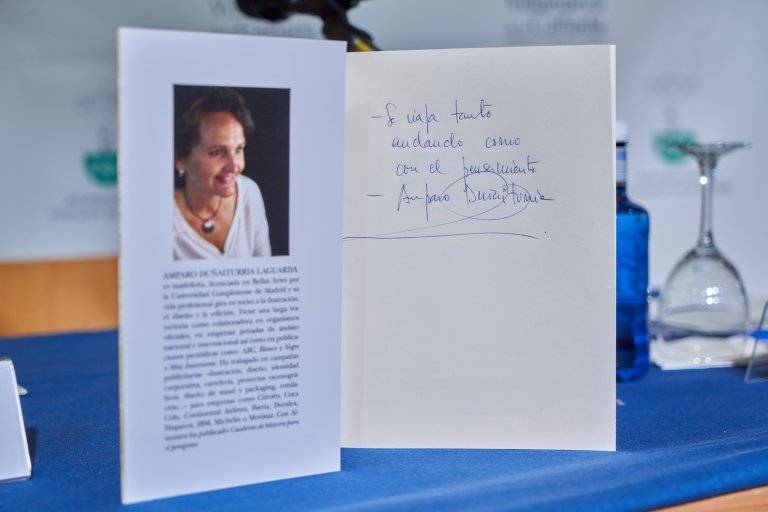 AMPARO DUÑAITURRIA LAGUARDA
es madrileña, licenciada en Bellas Artes por
la Universidad Complutense de Madrid y su
vida profesional gira en torno a la ilustración,
el diseño y la edición. Tiene una larga tra-
yectoria como colaboradora en organismos
oficiales, en empresas privadas de ámbito
nacional e internacional así como en publica-
ciones periódicas como: ABC, Blanco y Negro
o Muy Interesante. Ha trabajado en campañas
publicitarias –ilustración, diseño, identidad
corporativa, cartelería, proyectos escenográ-
ficos, diseño de stand y packaging, rotula-
ción...– para empresas como Citroën, Coca
Cola, Continental Airlines, Iberia, Duralex,
IBM, Michelin o Movistar. Con
ha publicado Cuaderno de bitácora para
el peregrino.
– Se viaja tanto
andando como
con el pensamiento
– Amparo